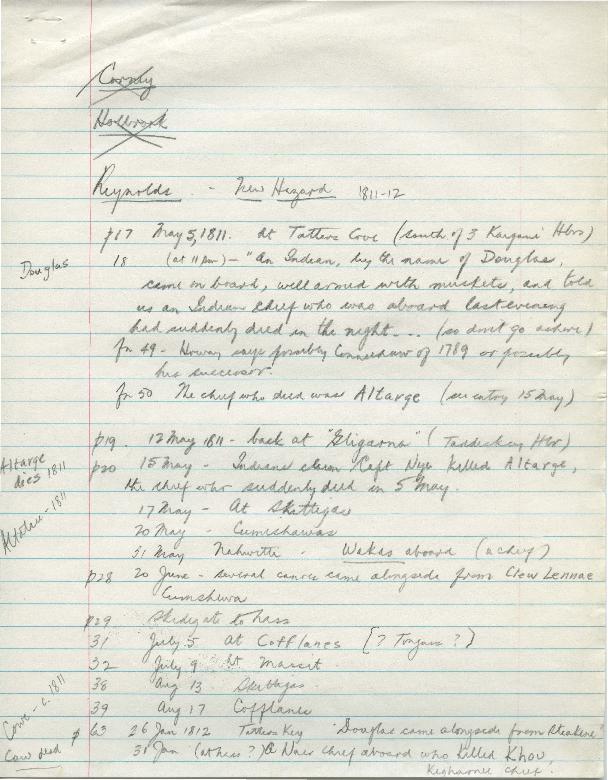 Holbrook
Reynolds - New Hazard 1811-12
p17 May 5, 1811. At Tatters Cove (south of 3 Kaigani Hbrs)
Douglas
18 (at 11 pm) - "An Indian, by the name of Douglas,
came on board, well armed with muskets, and told
us an Indian chief who was aboard last evening
had suddenly died in the night... (so don't go ashore)
fn 49 - Howay says possibly Conneehaw of 1789 or possibly
his successor.
fn 50 The chief who died was Altarge (see entry 15 May)
p19. 12 May 1811 - back at (Taddiskey Hbr)
Altarge
dies 1811
p20 15 May - Indians claim Capt Nye killed Altarge,
the chief who suddenly died in 5 May.
1811
17 May - At Skittegas
20 May - Cumshawas
31 May Nahwitte - Wakas aboard (a chief)
p28 20 June - several canoes came alongside from Clew Lennae
Cumshewa
p29 Skidegate to Nass
31 July 5 At Cofflanes [? Tongass ?]
32 July 9 At Massit
38 Aug 13 Skittegas
39 Aug 17 Cofflanes
Cowe - c. 1811
Cow died
p 63 26 Jan 1812 Tatters Key "Douglas came alongside from
31 Jan (at hess?) A Nass chief aboard who killed Khou,
Kigharnee chief.